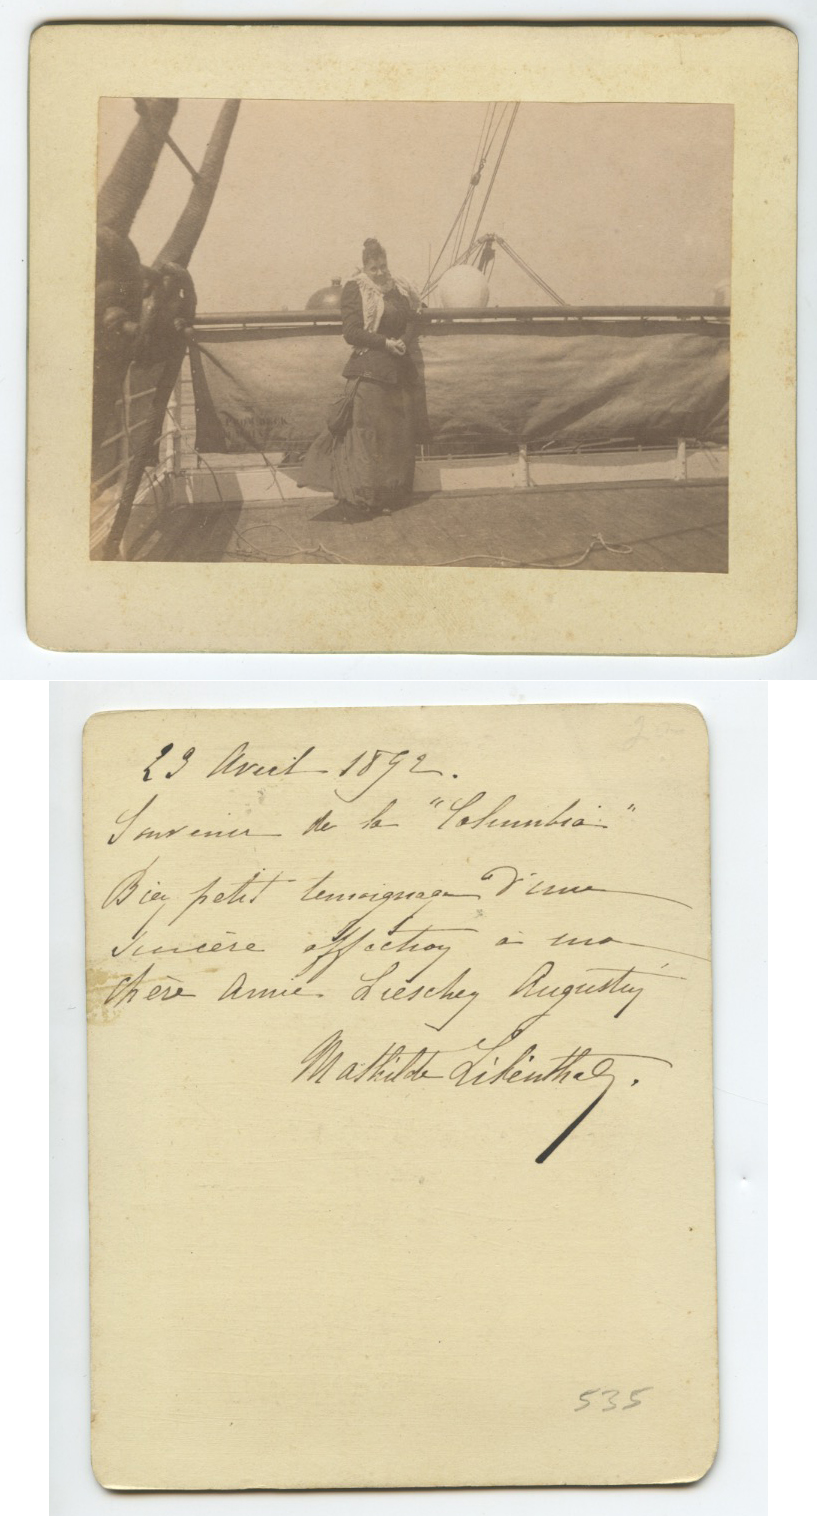 23 Avril 1892.
Souvenir de la "Columbia"
Bien petit temoignage d'une
sincère affection à ma
chère Amie Lieschen Augustin
Mathilde Lilienthal.
535